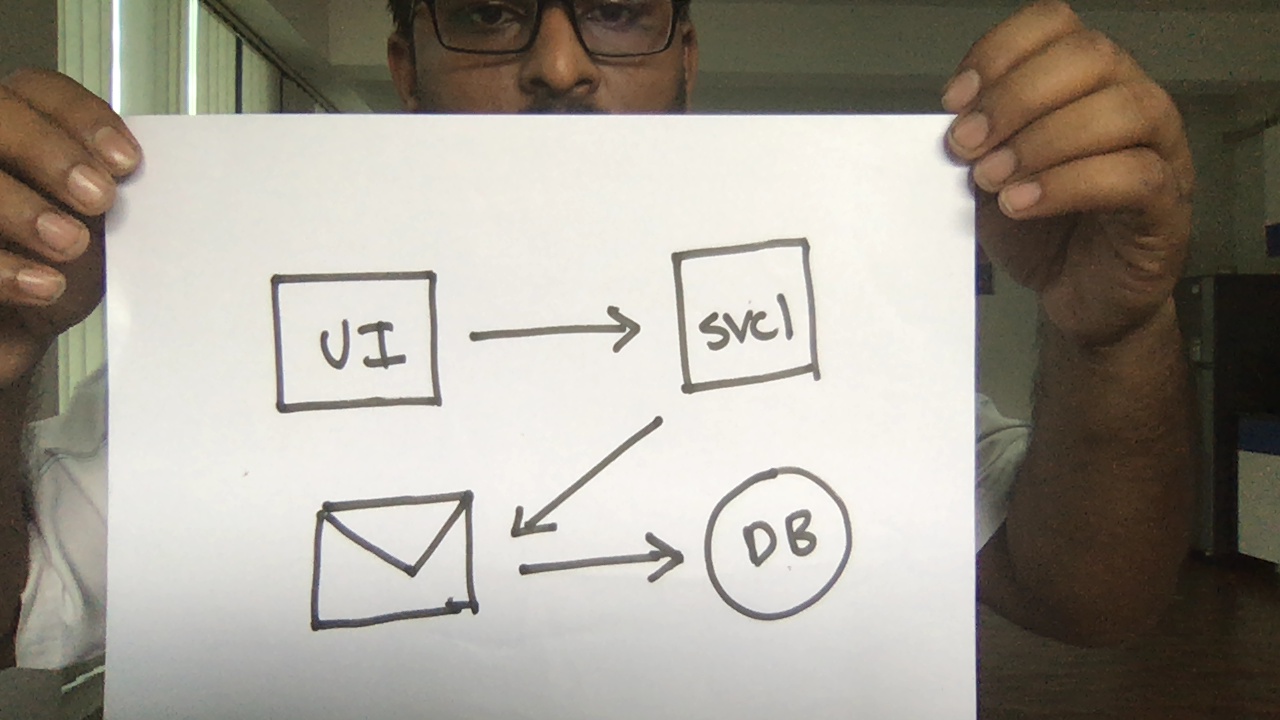 UI
svc1
DB